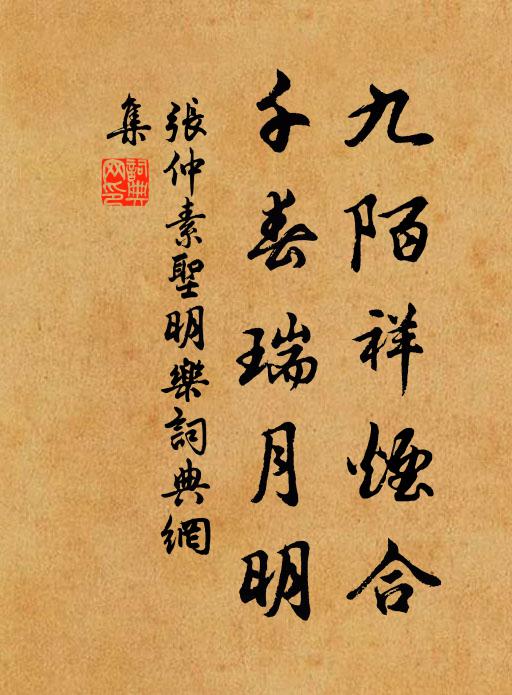 九陌祥煙合
千春瑞月明
張仲素聖明樂詞典網
集
詞典
网印